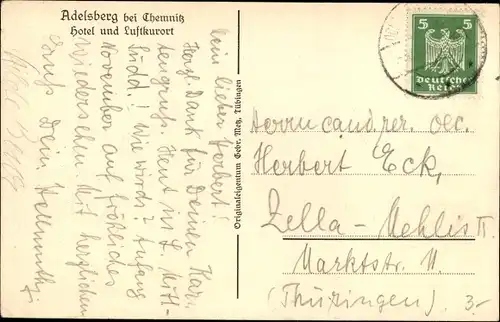 Adelsberg bei Chemnitz
Hotel und Luftkurort
Mein lieber Herbert!
Herzl. Dank für Deinen Kar-
tengruß. Heut in L. Mitt-
Südd! Wie wird's? Anfang
November auf fröhliches
Wiedersehn. Mit herzlichem
Gruß Dein Hellmuth.
Originaleigentum Gebr. Metz, Tübingen
5 5
Deutsches
Reich
Herrn cand. rer. oec.
Herbert Eck,
Zella-Mehlis II.
Marktstr. 11
(Thüringen)
3-